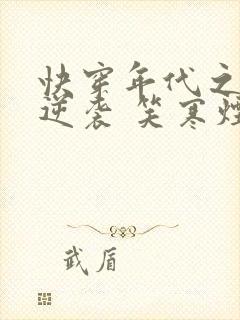 快穿年代之
逆袭 笑寒烟
武盾